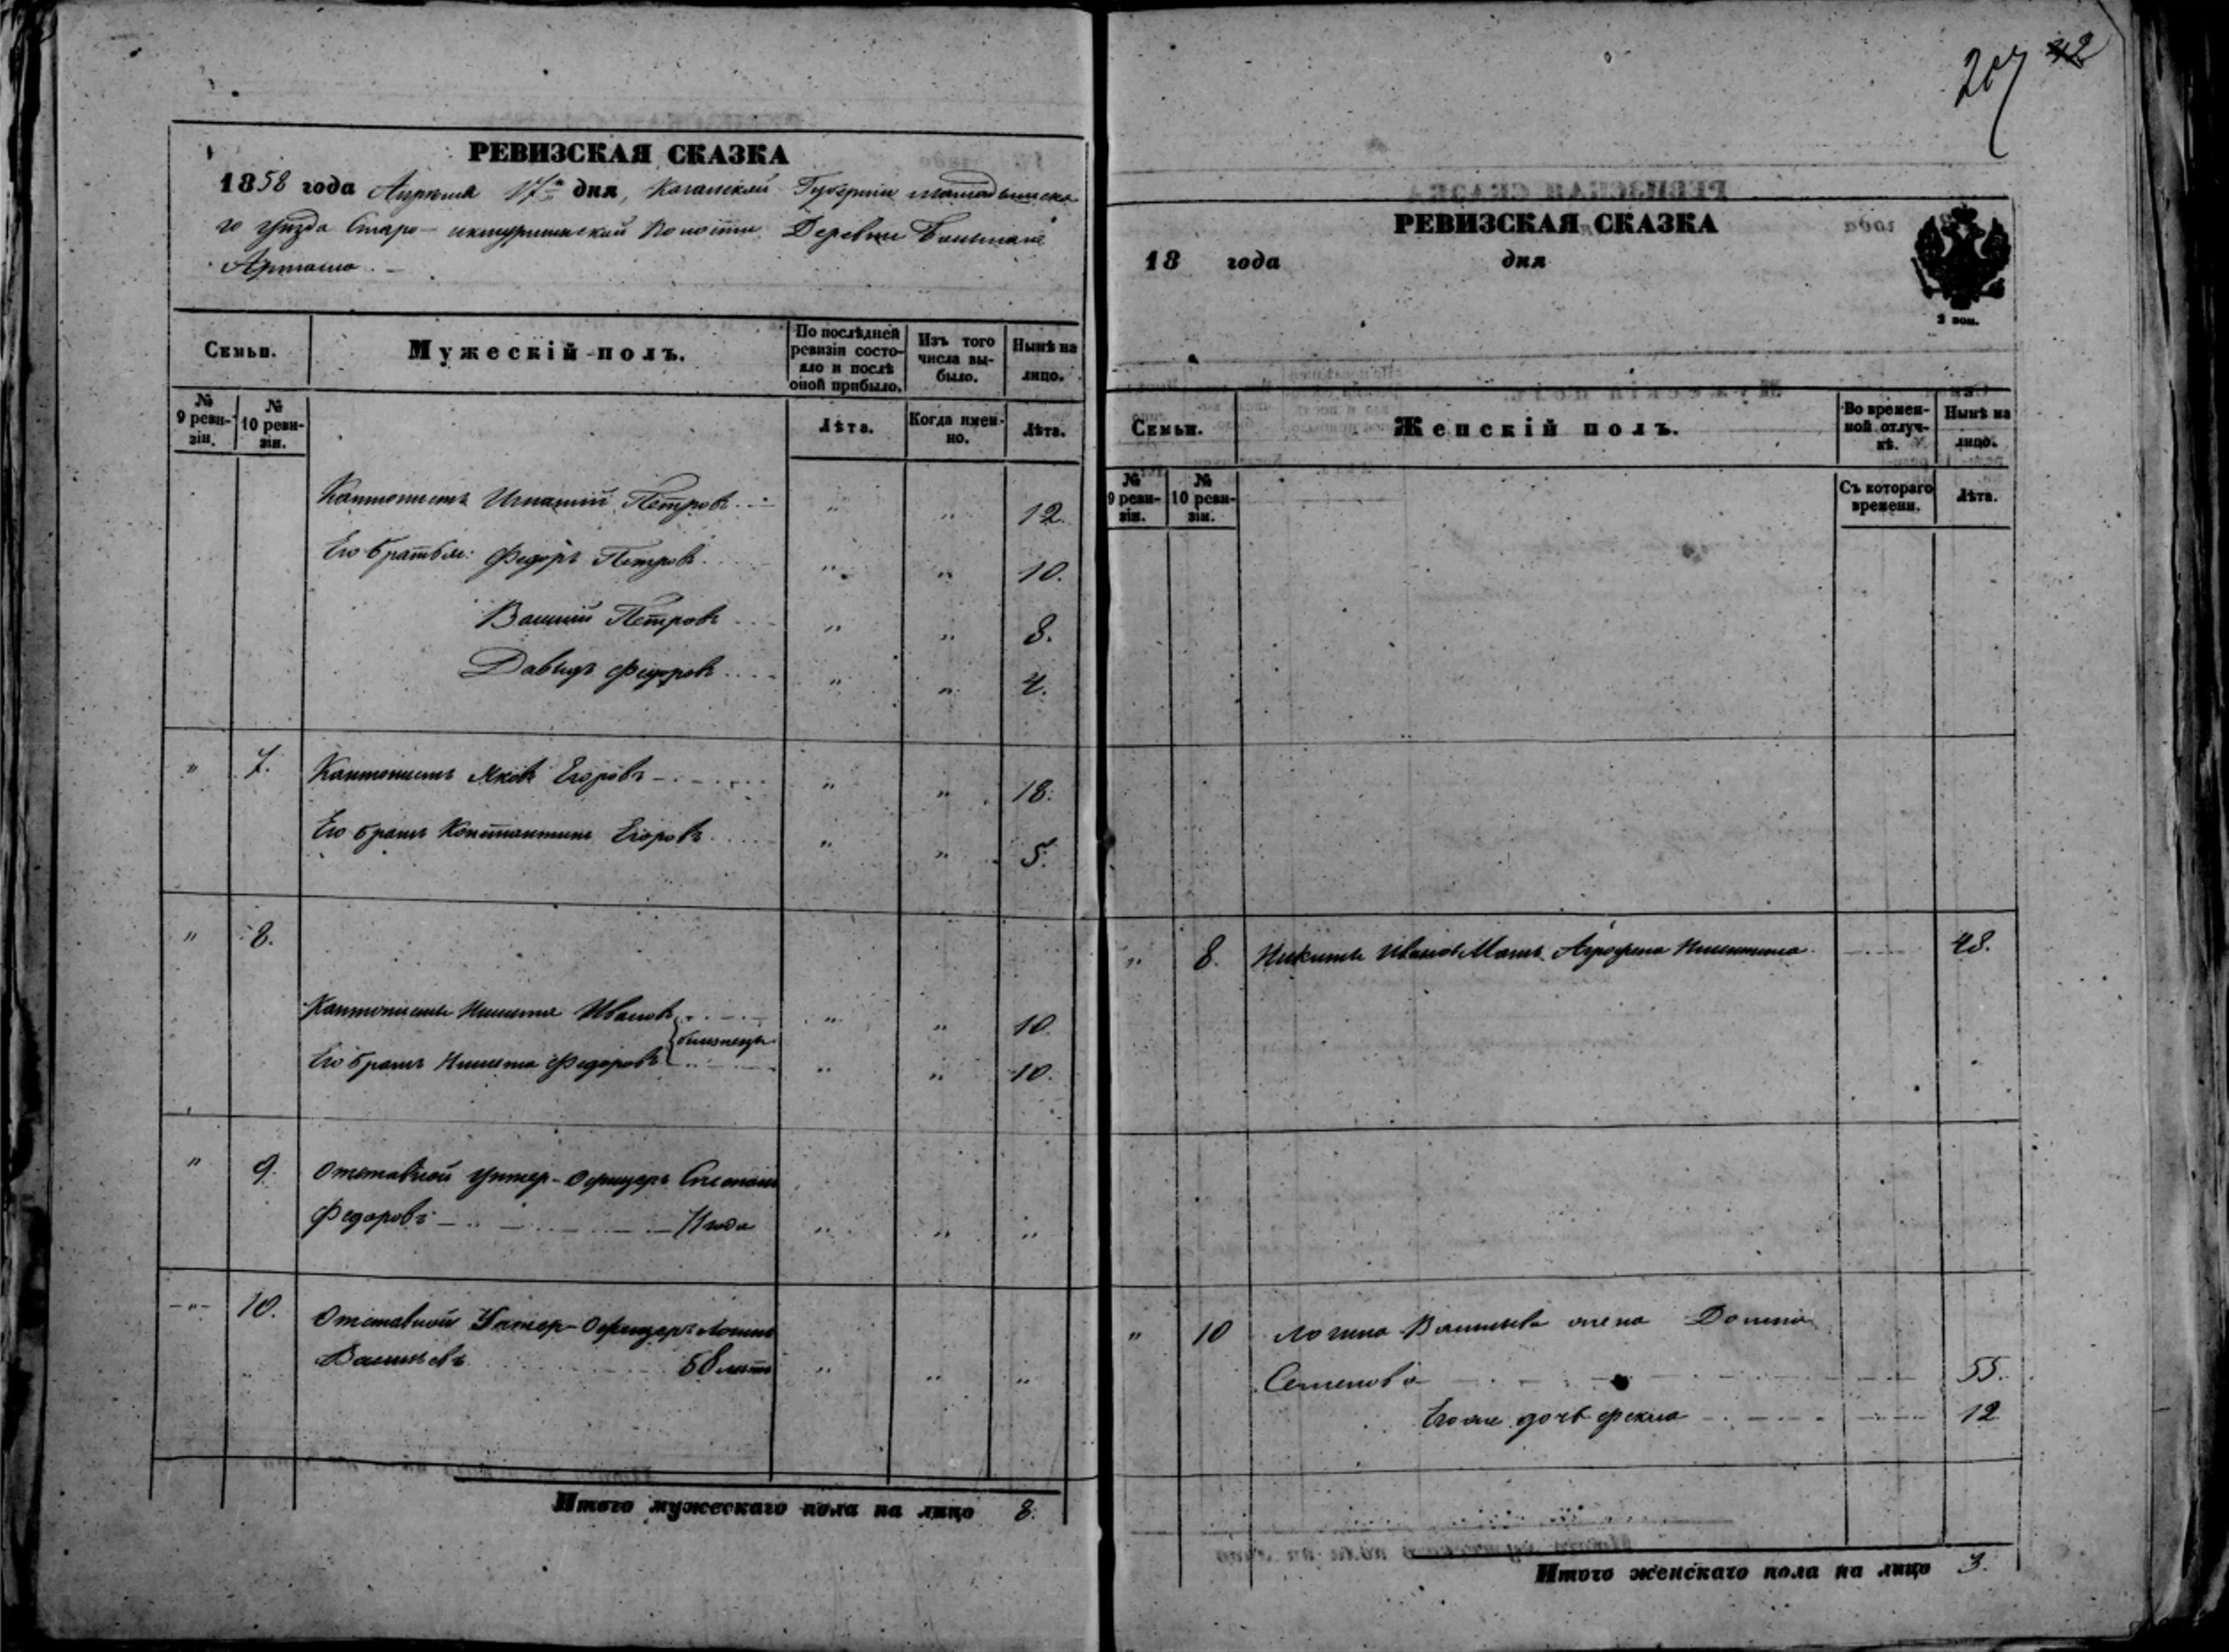 207 42
РЕВИЗСКАЯ СКАЗКА
1858 года Апреля 17го дня, Казанской Губернии мамадышска-
го уезда Старо- Волости Деревни
РЕВИЗСКАЯ СКАЗКА
18 года дня
2 коп.
Семьи.
Мужескій полъ.
По послѣдней ревизіи состояло и послѣ оной прибыло.
Изъ того числа выбыло.
Нынѣ на лицо.
№ 9 ревизіи.
№ 10 ревизіи.
Лѣта.
Когда именно.
Лѣта.
Кантонистъ Игнатий Петровъ " " 12.
Его братья: Федоръ Петровъ " " 10.
Василий Петровъ " " 8.
Давыдъ Федоровъ " " 4.
" 7. Кантонистъ Яковъ Егоровъ " " 18.
Его братъ Константинъ Егоровъ " " 5.
" 8.
Кантонистъ Никита Ивановъ " " 10.
близнецы
Его братъ Никита Федоровъ " " 10.
" 9. Отставной Унтер-Офицеръ Степанъ
Федоровъ " " "
" 10. Отставной Унтер-Офицеръ Логинъ
Васильевъ 58 летъ " " "
Итого мужескаго пола на лицо 8.
Семьи.
Женскій полъ.
Во временной отлучкѣ.
Нынѣ на лицо.
№ 9 ревизіи.
№ 10 ревизіи.
Съ котораго времени.
Лѣта.
" 8. Никиты Иванова Мать Агрофена 48.
" 10 Логина Васильева жена
Семенова 55.
Его же дочь Фекла 12
Итого женскаго пола на лицо 3.